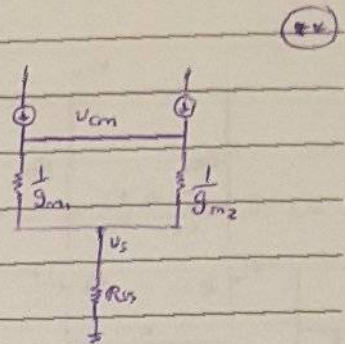 **
v_cm
1/g_m1
1/g_m2
v_s
R_ss